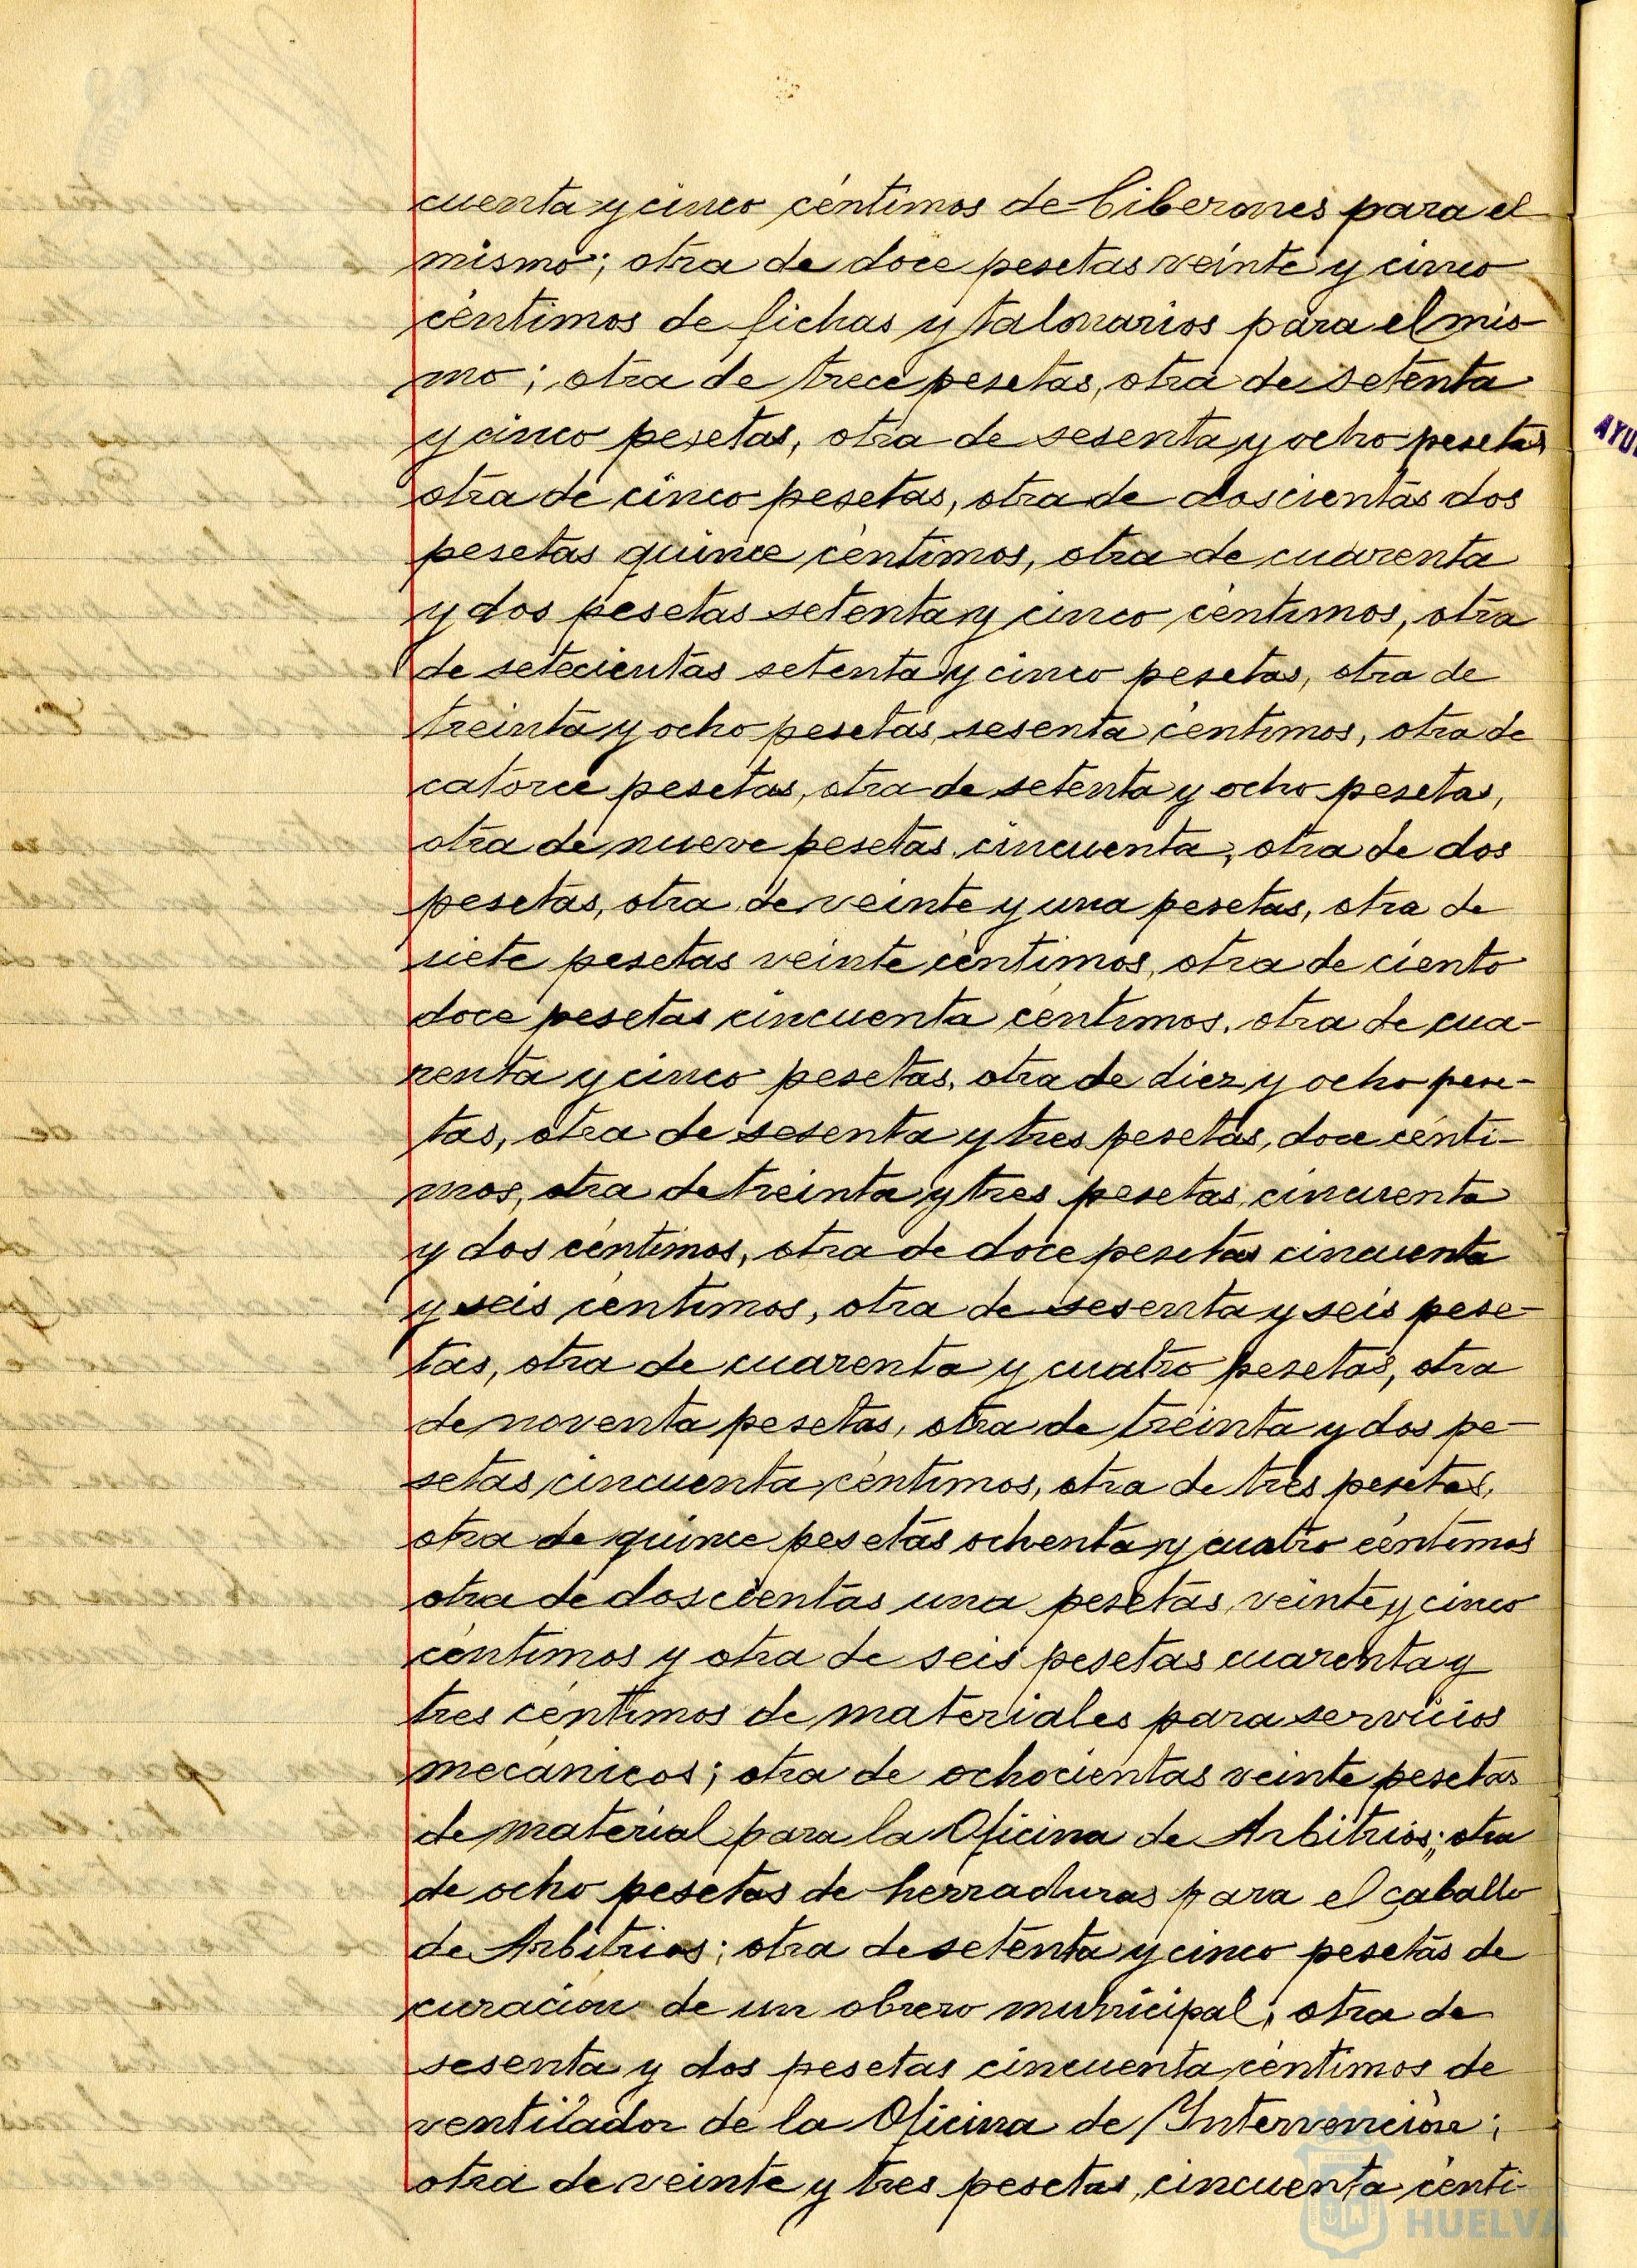 cuenta y cinco céntimos de biberones para el
mismo; otra de doce pesetas veinte y cinco
céntimos de fichas y talonarios para el mis-
mo; otra de trece pesetas, otra de setenta
y cinco pesetas, otra de sesenta y ocho pesetas
otra de cinco pesetas, otra de doscientas dos
pesetas quince céntimos, otra de cuarenta
y dos pesetas setenta y cinco céntimos, otra
de setecientas setenta y cinco pesetas, otra de
treinta y ocho pesetas, sesenta céntimos, otra de
catorce pesetas, otra de setenta y ocho pesetas,
otra de nueve pesetas cincuenta, otra de dos
pesetas, otra de veinte y una pesetas, otra de
siete pesetas veinte céntimos, otra de ciento
doce pesetas cincuenta céntimos, otra de cua-
renta y cinco pesetas, otra de diez y ocho pese-
tas, otra de sesenta y tres pesetas, doce cénti-
mos, otra de treinta y tres pesetas, cincuenta
y dos céntimos, otra de doce pesetas cincuenta
y seis céntimos, otra de sesenta y seis pese-
tas, otra de cuarenta y cuatro pesetas, otra
de noventa pesetas, otra de treinta y dos pe-
setas cincuenta céntimos, otra de tres pesetas,
otra de quince pesetas ochenta y cuatro céntimos
otra de doscientas una pesetas, veinte y cinco
céntimos y otra de seis pesetas cuarenta y
tres céntimos de materiales para servicios
mecánicos; otra de ochocientas veinte pesetas
de material para la Oficina de Arbitrios; otra
de ocho pesetas de herraduras para el caballo
de Arbitrios; otra de setenta y cinco pesetas de
curación de un obrero municipal; otra de
sesenta y dos pesetas cincuenta céntimos de
ventilador de la Oficina de Intervención;
otra de veinte y tres pesetas, cincuenta cénti-
HUELVA
AYU